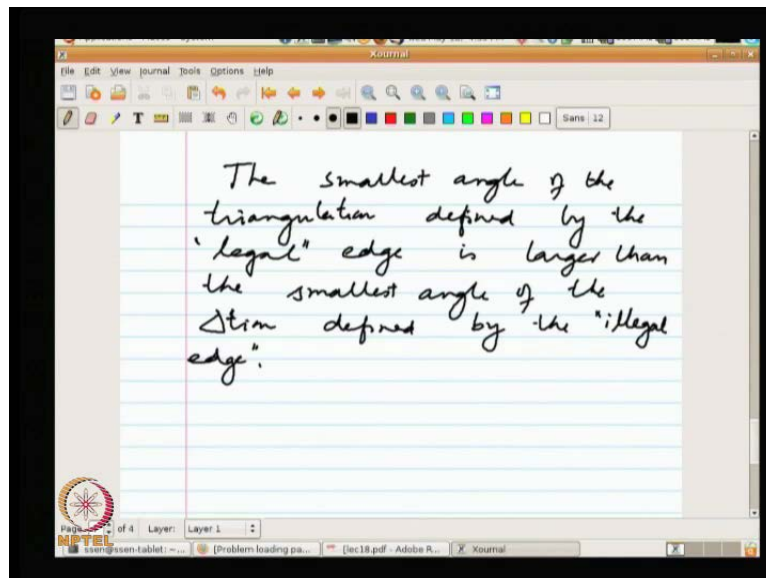 Xournal
File Edit View Journal Tools Options Help
T Sans 12
The smallest angle of the
triangulation defined by the
"legal" edge is larger than
the smallest angle of the
Δtion defined by the "illegal
edge".
Page of 4 Layer: Layer 1
NPTEL
ssen@ssen-tablet: ~... [Problem loading pa... [lec18.pdf - Adobe R... Xournal